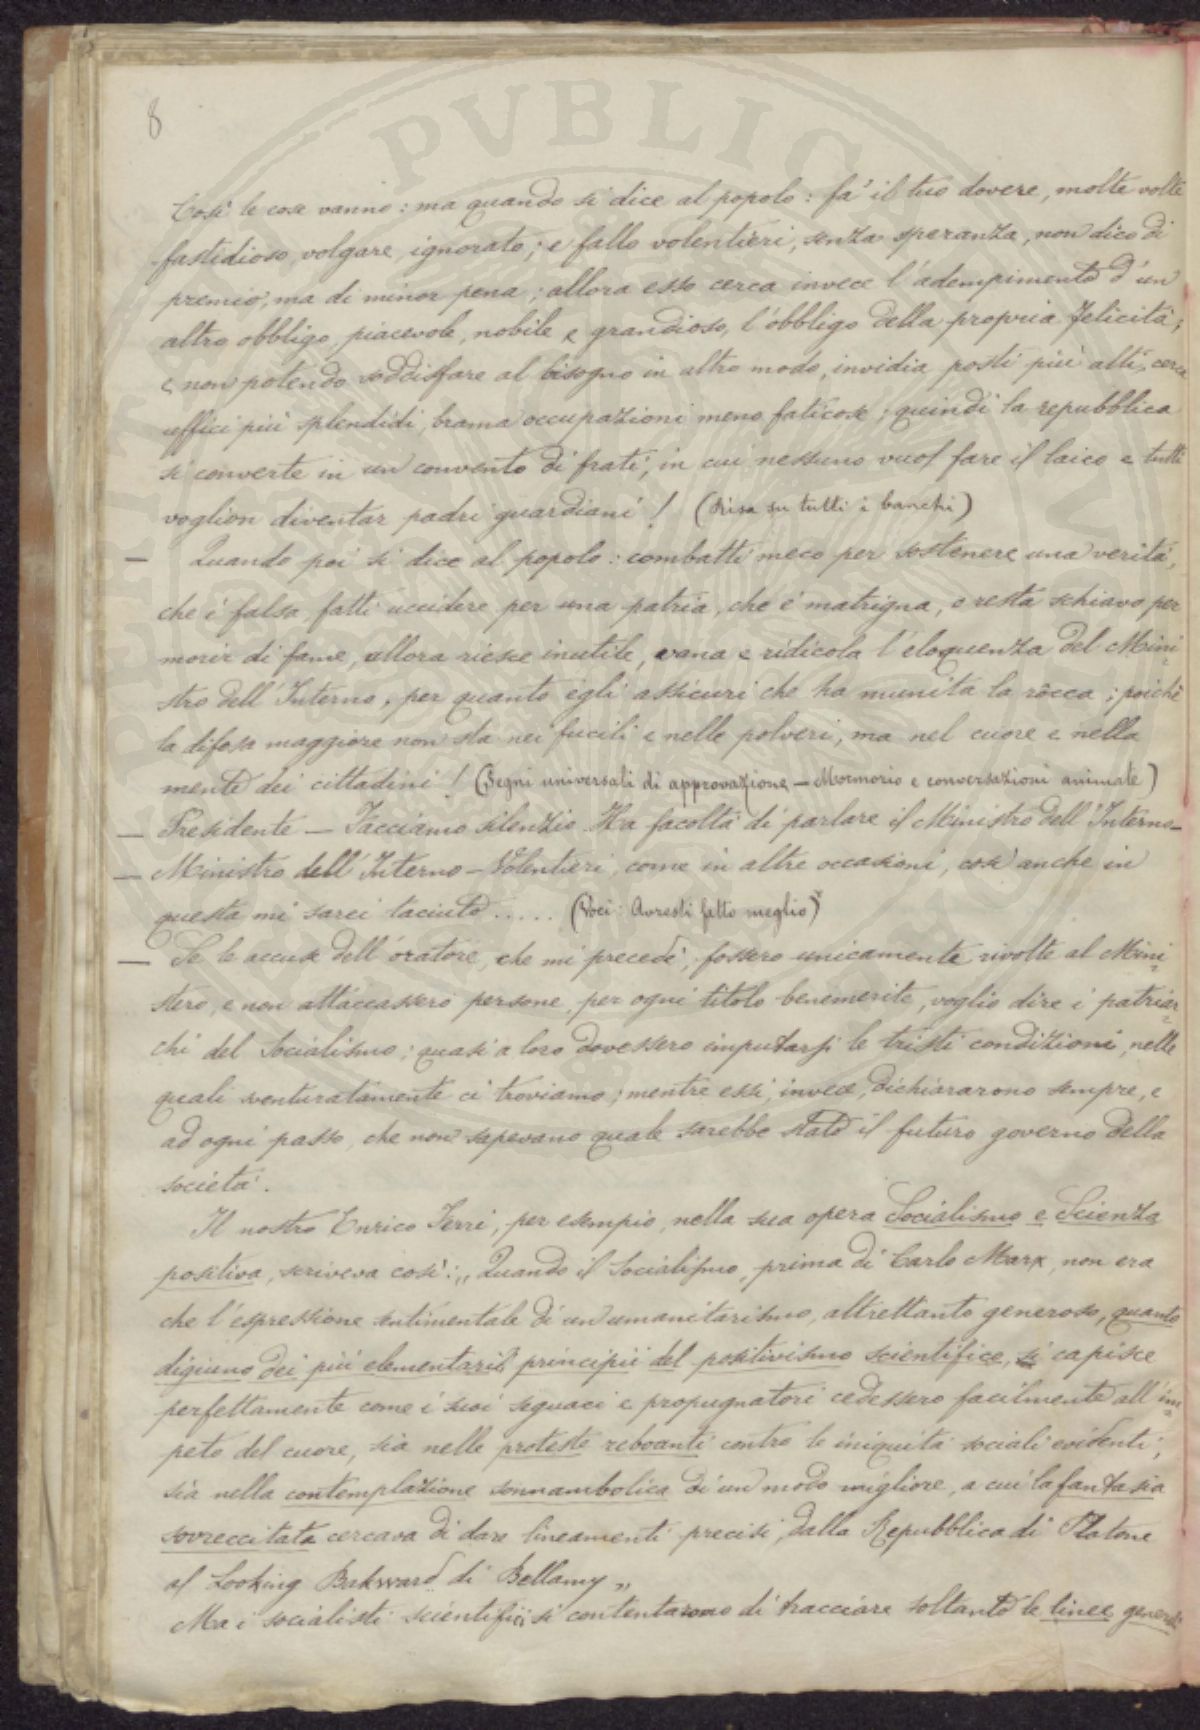 8
Così le cose vanno: ma quando si dice al popolo: fa' il tuo dovere, molte volte
fastidioso, volgare, ignorato; e fallo volentieri, senza speranza, non dico di
premio, ma di minor pena; allora esso cerca invece l'adempimento d'un
altro obbligo, piacevole, nobile e grandioso, l'obbligo della propria felicità;
e non potendo soddisfare al bisogno in altro modo, invidia posti più alti, cerca
uffici più splendidi, brama occupazioni meno faticose; quindi la repubblica
si converte in un convento di frati, in cui nessuno vuol fare il laico e tutti
voglion diventar padri guardiani! (Risa su tutti i banchi)
— Quando poi si dice al popolo: combatti meco per sostenere una verità,
che è falsa, fatti uccidere per una patria, che è matrigna, o resta schiavo per
morir di fame, allora riesce inutile, vana e ridicola l'eloquenza del Mini-
stro dell'Interno, per quanto egli assicuri che ha munita la ròcca; poichè
la difesa maggiore non sta nei fucili e nelle polveri, ma nel cuore e nella
mente dei cittadini! (Segni universali di approvazione — Mormorio e conversazioni animate)
— Presidente — Facciamo silenzio. Ha facoltà di parlare il Ministro dell'Interno —
— Ministro dell'Interno — Volentieri, come in altre occasioni, così anche in
questa mi sarei taciuto ..... (Voci: Avresti fatto meglio)
— Se le accuse dell'oratore, che mi precedè, fossero unicamente rivolte al Mini-
stero, e non attaccassero persone, per ogni titolo benemerite, voglio dire i patriar-
chi del Socialismo; quasi a loro dovessero imputarsi le tristi condizioni, nelle
quali sventuratamente ci troviamo; mentre essi, invece, dichiararono sempre, e
ad ogni passo, che non sapevano quale sarebbe stato il futuro governo della
società.
Il nostro Enrico Ferri, per esempio, nella sua opera Socialismo e Scienza
positiva, scriveva così: „Quando il Socialismo, prima di Carlo Marx, non era
che l'espressione sentimentale di un umanitarismo, altrettanto generoso, quanto
digiuno dei più elementari principii del positivismo scientifico, si capisce
perfettamente come i suoi seguaci e propugnatori cedessero facilmente all'im-
peto del cuore, sia nelle proteste reboanti contro le iniquità sociali evidenti;
sia nella contemplazione sonnambolica di un modo migliore, a cui la fantasia
sovreccitata cercava di dare lineamenti precisi, dalla Repubblica di Platone
al Looking Bakward di Bellamy„
Ma i socialisti scientifici si contentarono di tracciare soltanto le linee generali
PVBLIC